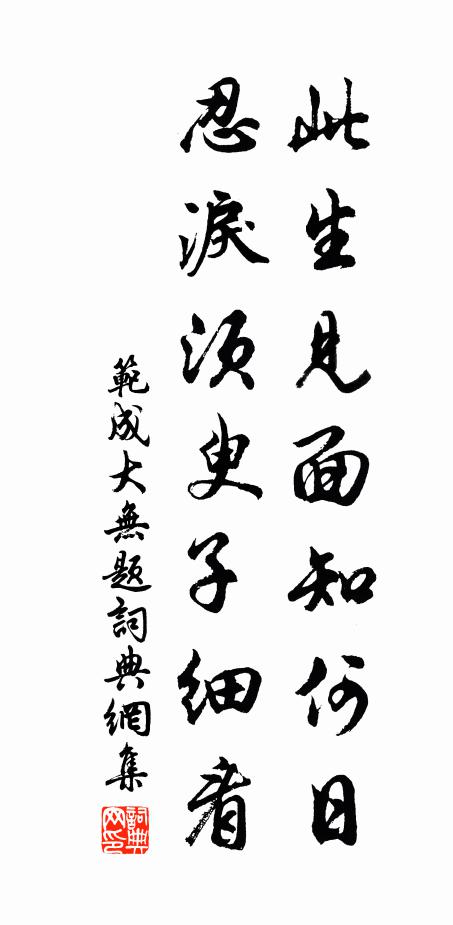 此生見面知何日
忍淚須臾子細看
範成大無題詞典網集
詞典網印